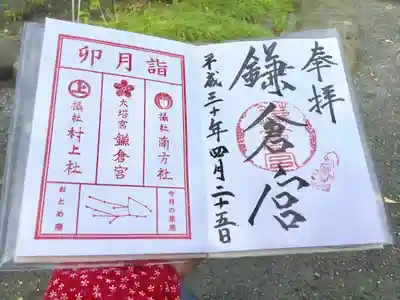 奉拝
鎌倉宮
平成三十年四月二十五日
卯月詣
摂社
南方社
大塔宮
鎌倉宮
上
摂社
村上社
今月の星座
おとめ座